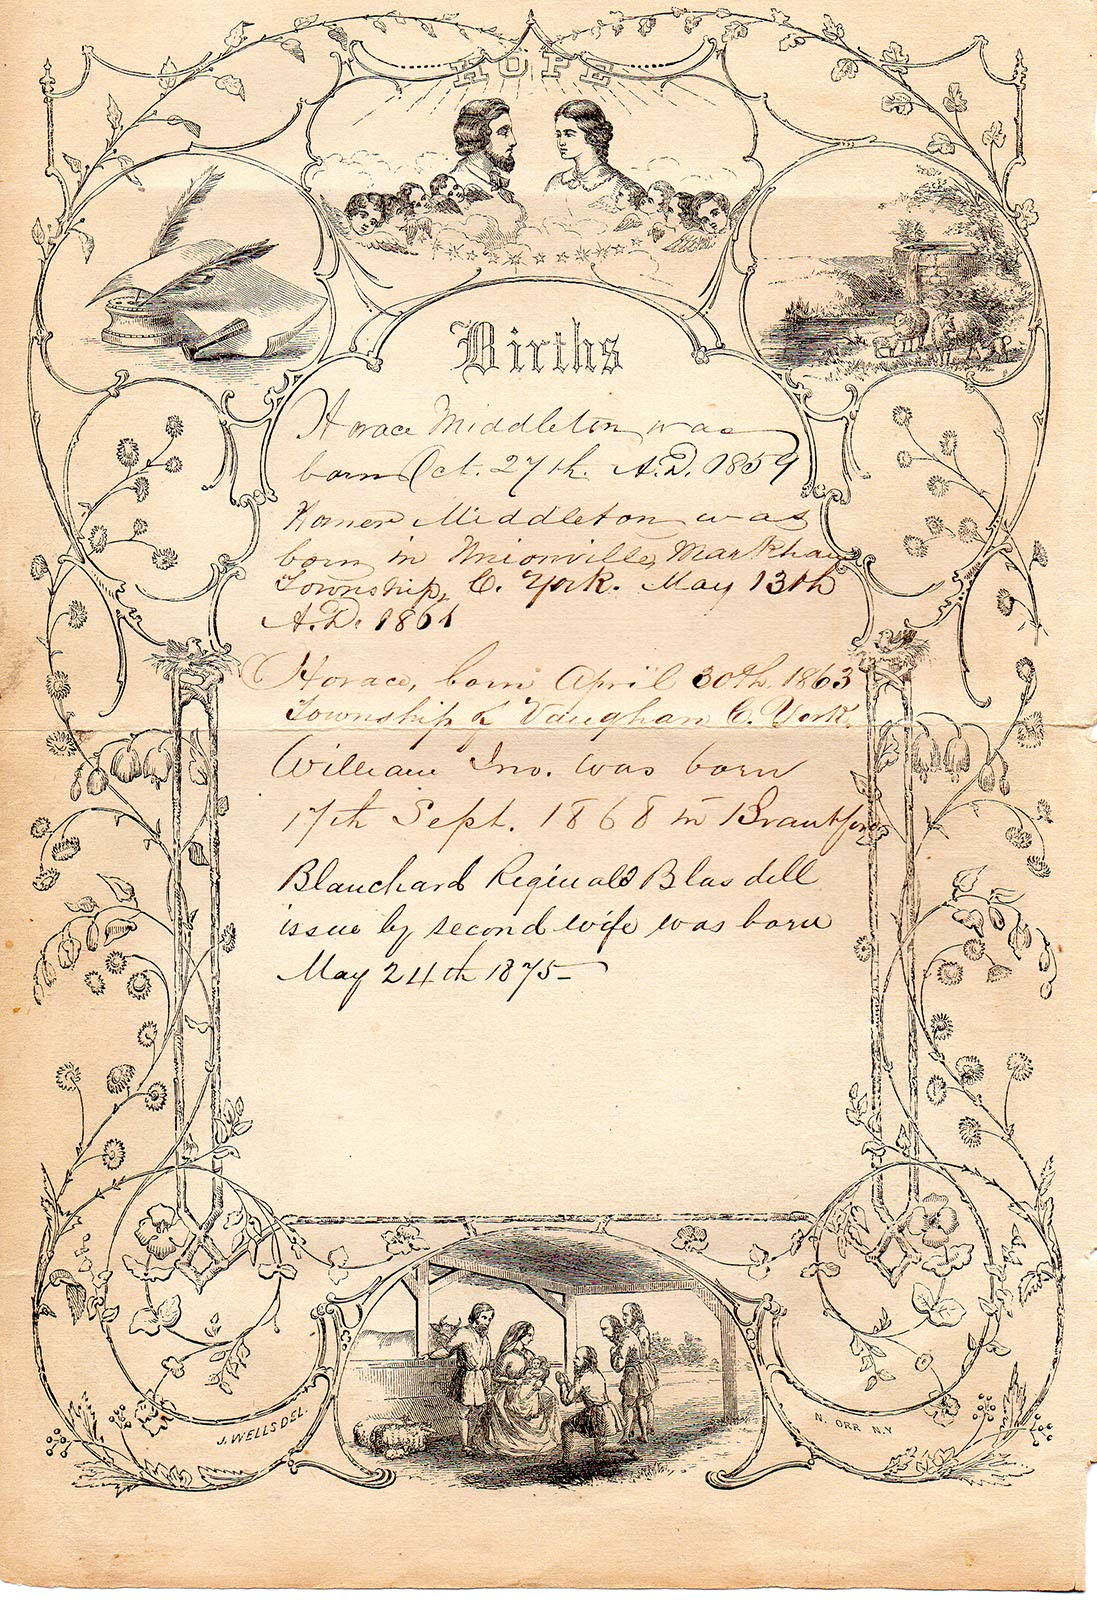 HOPE
Births
Horace Middleton was
born Oct. 27th. A.D. 1859
Homer Middleton was
born in Unionville, Markham
Township, C. York. May 13th
A.D. 1861
Horace, born April 30th 1863
Township of Vaughan C. York.
William Jno. was born
17th Sept. 1868 in Brantford
Blanchard Reginald Blasdell
issue by second wife was born
May 24th 1875-
J. WELLS DEL.
N. ORR N.Y